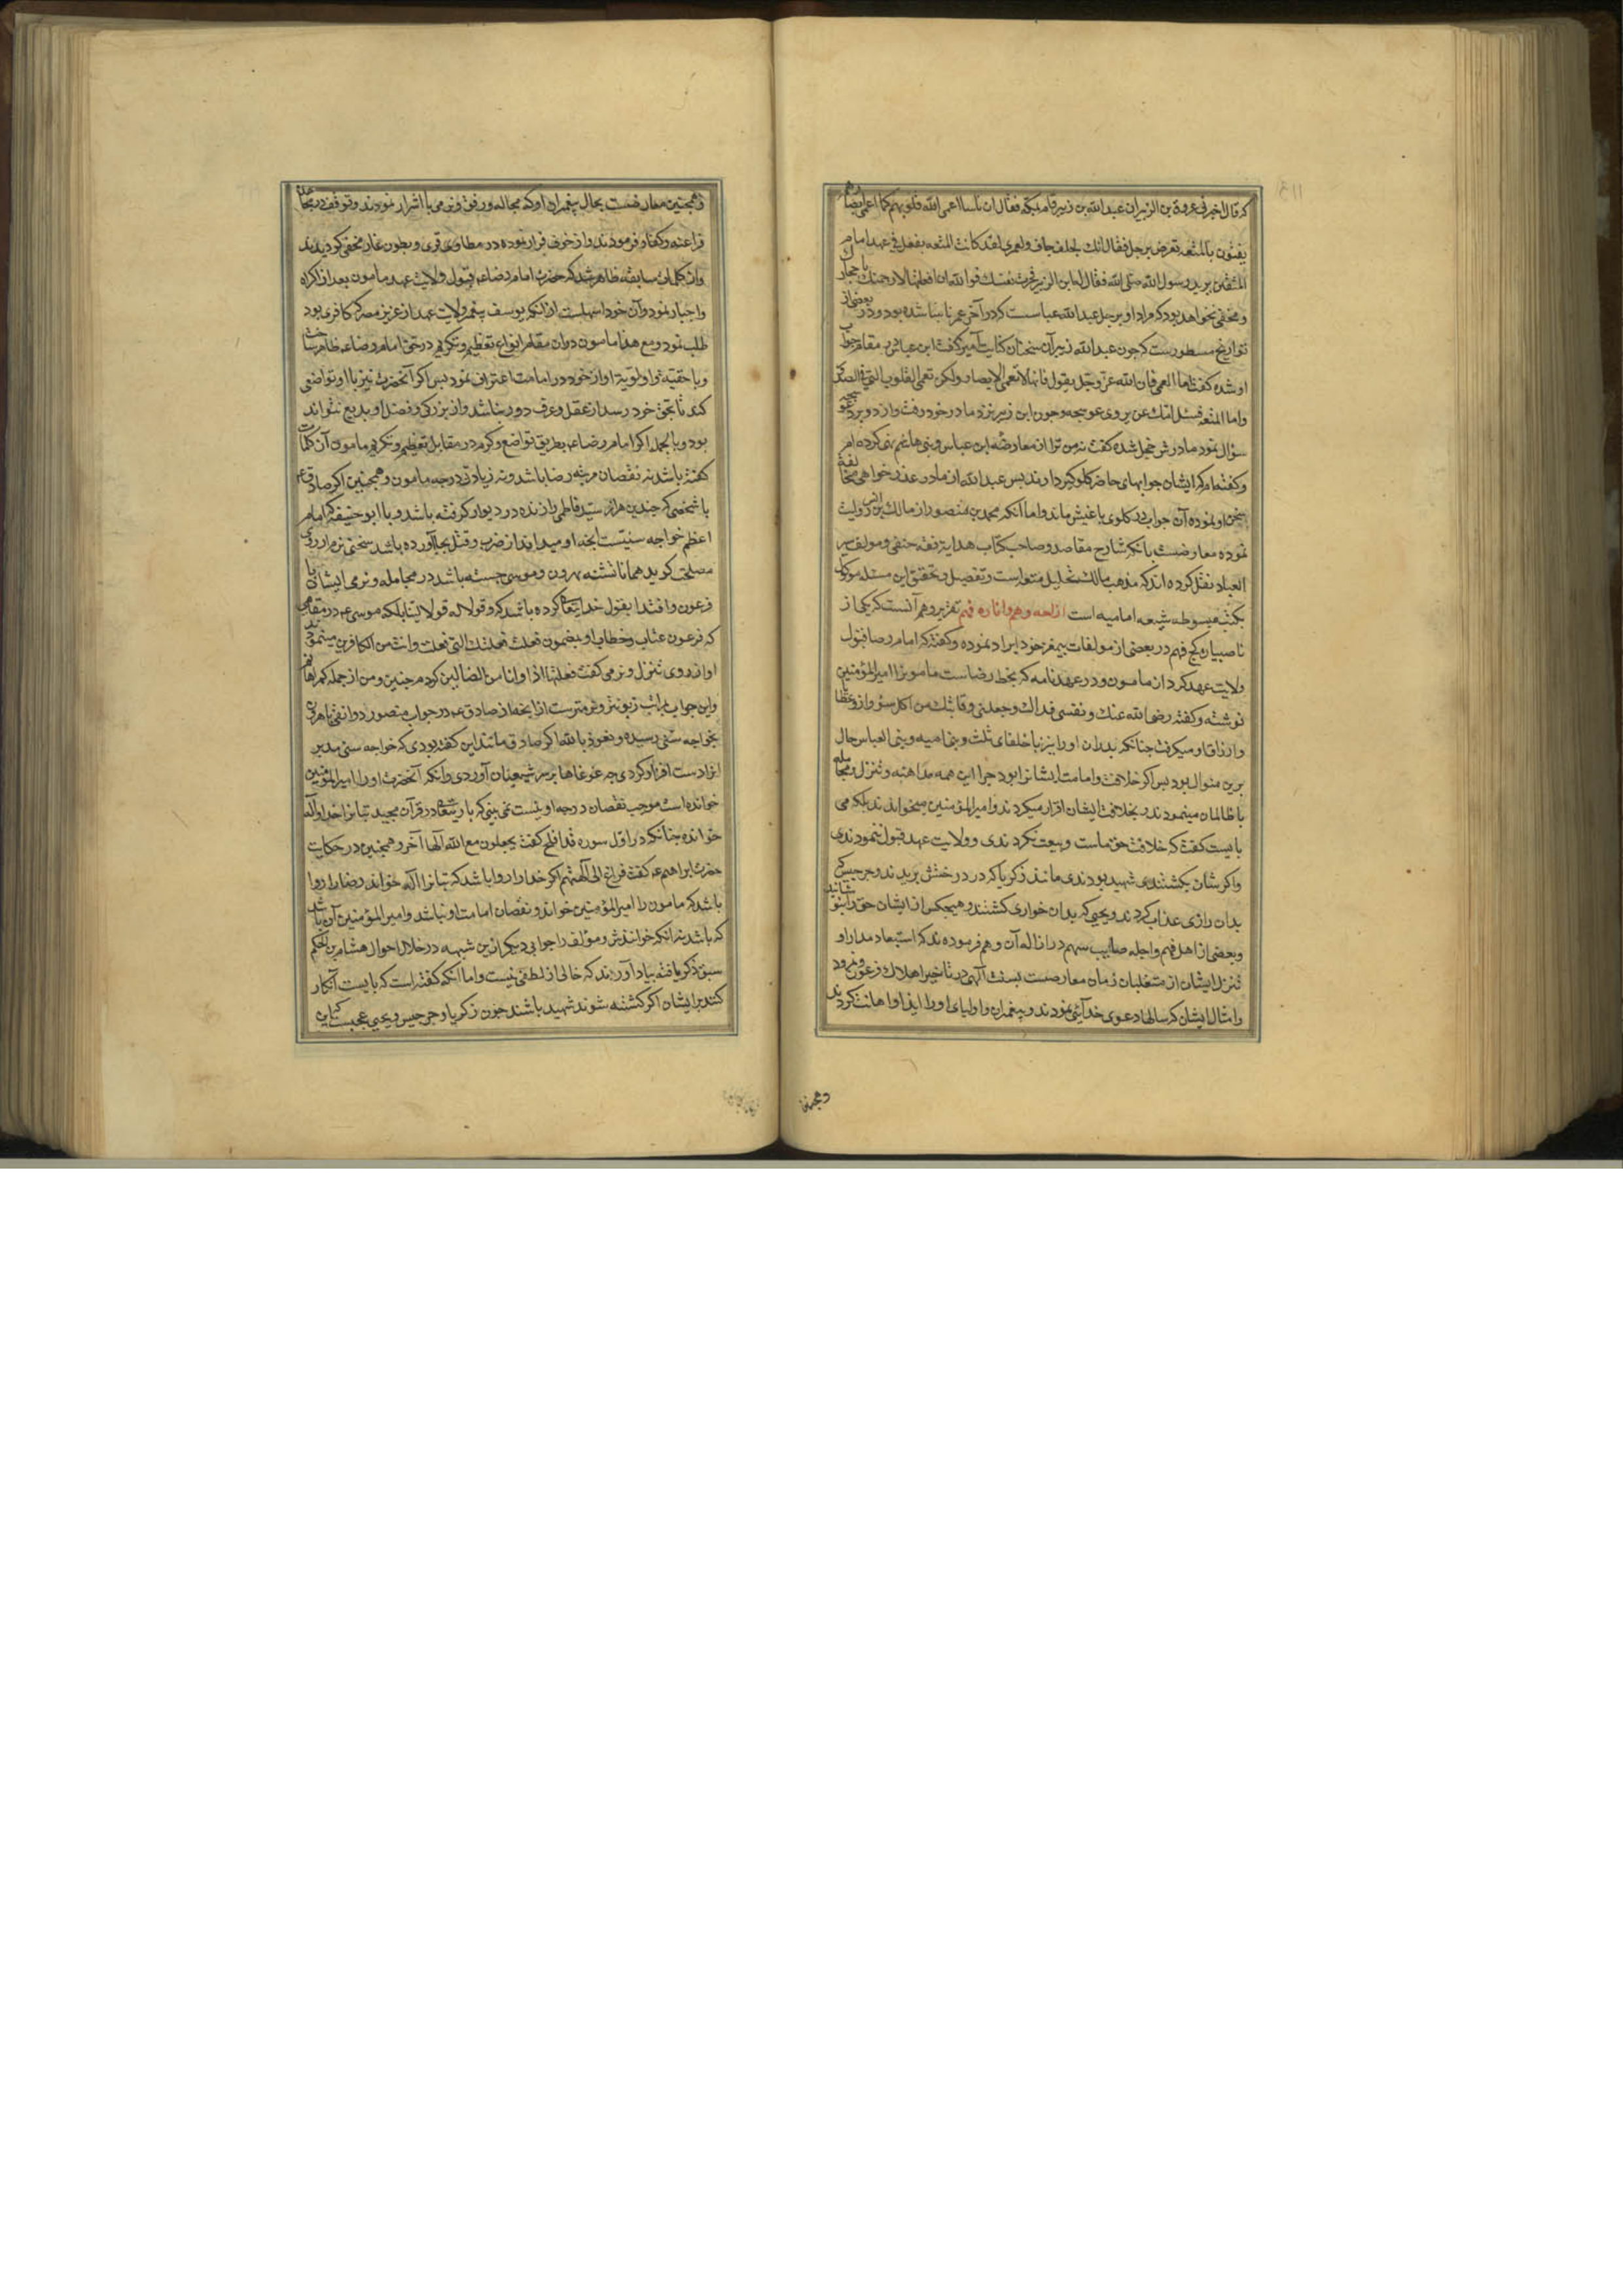 که قال اخبرنی عروة بن الزبیر ان عبد الله بن زبیر قام بمکه فقال ان ناسا اعمی الله قلوبهم کما اعمی ابصارهم
یفتون بالمتعه یعرض برجل فقال انک لجلف جاف و لعمری لقد کانت المتعه یفعل فی عهد امام
المتقین یرید رسول الله صلی الله فقال له ابن الزبیر فجرب نفسک فوالله ان فعلتها لارجمنک باحجارک
و مخفی نخواهد بود که مراد او برجل عبد الله عباسست که در آخر عمر نابینا شده بود و در بعضی از
تواریخ مسطورست که چون عبد الله زبیر آن سخنان کنایت آمیز گفت ابن عباس در مقام جواب
او شده گفت اما العمی فان الله عز و جل یقول فانها لا تعمی الابصار ولکن تعمی القلوب التی فی الصدور
و اما المتعه فسئل امک عن بردی عوسجه و چون ابن زبیر نزد مادر خود رفت و از دو برد عوسجه
سؤال نمود مادرش خجل شده گفت نه من ترا از معارضه ابن عباس و بنی هاشم نهی کرده ام
و گفته ام که ایشان جوابهای حاضر گلوگیر دارند پس عبد الله از مادر عذر خواهی مخالفت
سخن او نموده آن جواب در گلوی باغیش ماند و اما آنکه محمد بن منصور از مالک بن انس روایت
نموده معارضست بآنکه شارح مقاصد و صاحب کتاب هدایه فقه حنفی و مولف سیر
العباد نقل کرده اند که مذهب مالک تحلیل متعه است و تفصیل و تحقیق این مسئله موکول
بکتب مبسوطه شیعه امامیه است ازاحه وهم و اناره فهم تقریر وهم آنست که یکی از
ناصبیان کج فهم در بعضی از مولفات بیمغز خود ایراد نموده و گفته که امام رضا قبول
ولایت عهد کرد از مامون و در عهدنامه که بخط رضاست مامون را امیر المؤمنین
نوشته و گفته رضی الله عنک و نفسی فداک و جعلنی وقایتک من اکل سؤ و ازو عطا
و ارزاق او میگرفت چنانکه پدران او را نیز با خلفای ثلث و بنی امیه و بنی العباس حال
برین منوال بود پس اگر خلافت و امامت ایشانرا بود چرا این همه مداهنه و تنزل و مجامله
با ظالمان مینمودند و بخلافت ایشان اقرار میکردند و امیر المؤمنین میخواندند بلکه می
بایست گفت که خلافت حق ماست و بیعت نکردندی و ولایت عهد قبول ننمودندی
و اگرشان بکشتندی شهید بودندی مانند زکریا که در درختش بریدند و جرجیس که
بدان زاری عذاب کردند و یحیی که بدان خواری کشتند و هیچکس از ایشان حق را نپوشانید
و بعضی از اهل فهم و اجله صائب سهم در ازاله آن وهم فرموده ند که استبعاد مدارا و
تنزل ایشان از متغلبان زمان معارضست بسنت آلهی در تاخیر اهلاک فرعون و نمرود
و امثال ایشان که سالها دعوی خدائی نمودند و پیغمبران و اولیای او را ایذا و اهانت کردند
و همچنین
و همچنین معارضست بحال پیغمبران او که مجامله و رفق و نرمی با اشرار نمودند و توقف در
فراعنه و کفار فرمودند و از خوف فرار نموده در مطاوی قری و بطون غار مخفی گردیدند
و از کلمات سابقه ظاهر شد که حضرت امام رضا ع قبول ولایت عهد مامون بعد از اکراه
و اجبار نمود و آن خود اسهلست از آنکه یوسف پیغمبر ولایت عهد از عزیز مصر که کافری بود
طلب نمود و مع هذا مامون در آن مقام انواع تعظیم و تکریم در حق امام رضا ع ظاهر ساخت
و باحقیه و اولویة او از خود در امامت اعتراف نمود پس اگر آنحضرت نیز با او تواضعی
کند تا بحق خود رسد از عقل و عرف دور نباشد و از بزرگی و فضل او بدیع نتواند
بود و بالجمله اگر امام رضا ع بطریق تواضع و کرم در مقابل تعظیم و تکریم مامون آن کلمات
گفته باشد نه نقصان مرتبه رضا باشد و نه زیادتی درجه مامون و همچنین اگر صادق ع
با شخصی که چندین هزار سید فاطمی را زنده در دیوار گرفته باشد و با ابو حنیفه که امام
اعظم خواجه سنیست آنچه او میداند از ضرب و قتل بجا آورده باشد سخنی نرم از روی
مصلحت گوید همانا تشبه بهرون و موسی جسته باشد در مجامله و نرمی ایشان با
فرعون و اقتدا بقول خدایتعا کرده باشد که و قولا له قولا لینا بلکه موسی ع در مقامی
که فرعون عتاب و خطاب او بمضمون فعلت فعلتک التی فعلت و انت من الکافرین مینمود
او از روی تنزل و نرمی گفت فعلتها اذا و انا من الضالین کردم چنین و من از جمله گمراهانم
و این جواب بمراتب زبونتر و نرمترست از آنچه از صادق ع در جواب منصور دوانقی
بخواجه سنی رسیده و نعوذ بالله اگر صادق مانند این گفته بودی که خواجه سنی مدبر
از دست کردی چه غوغاها بر سر شیعیان آوردی و آنکه آنحضرت او را امیر المؤمنین
خوانده است موجب نقصان درجه او نیست نمی بینی که باری تعالی در قرآن مجید بتانرا خدا و اله
خوانده چنانکه در اول سوره قد افلح گفت یجعلون مع الله الها آخر و همچنین در حکایت
حضرت ابراهیم ع گفت فراغ الی آلهتهم اگر خدا را روا باشد که بتانرا اله خواند رضا را روا
باشد که مامون را امیر المؤمنین خواند و نقصان امامت او نباشد و امیر المؤمنین آن باشد
که باشد نه آنکه خوانندش و مؤلف را جوابی دیگر ازین شبهه در خلال احوال هشام بن الحکم
سبق ذکر یافته بیاد آورند که خالی از لطفی نیست و اما آنکه گفته است که بایست آنکار
کنند بر ایشان اگر کشته شوند شهید باشند چون زکریا و جرجیس و یحیی عجبست که این